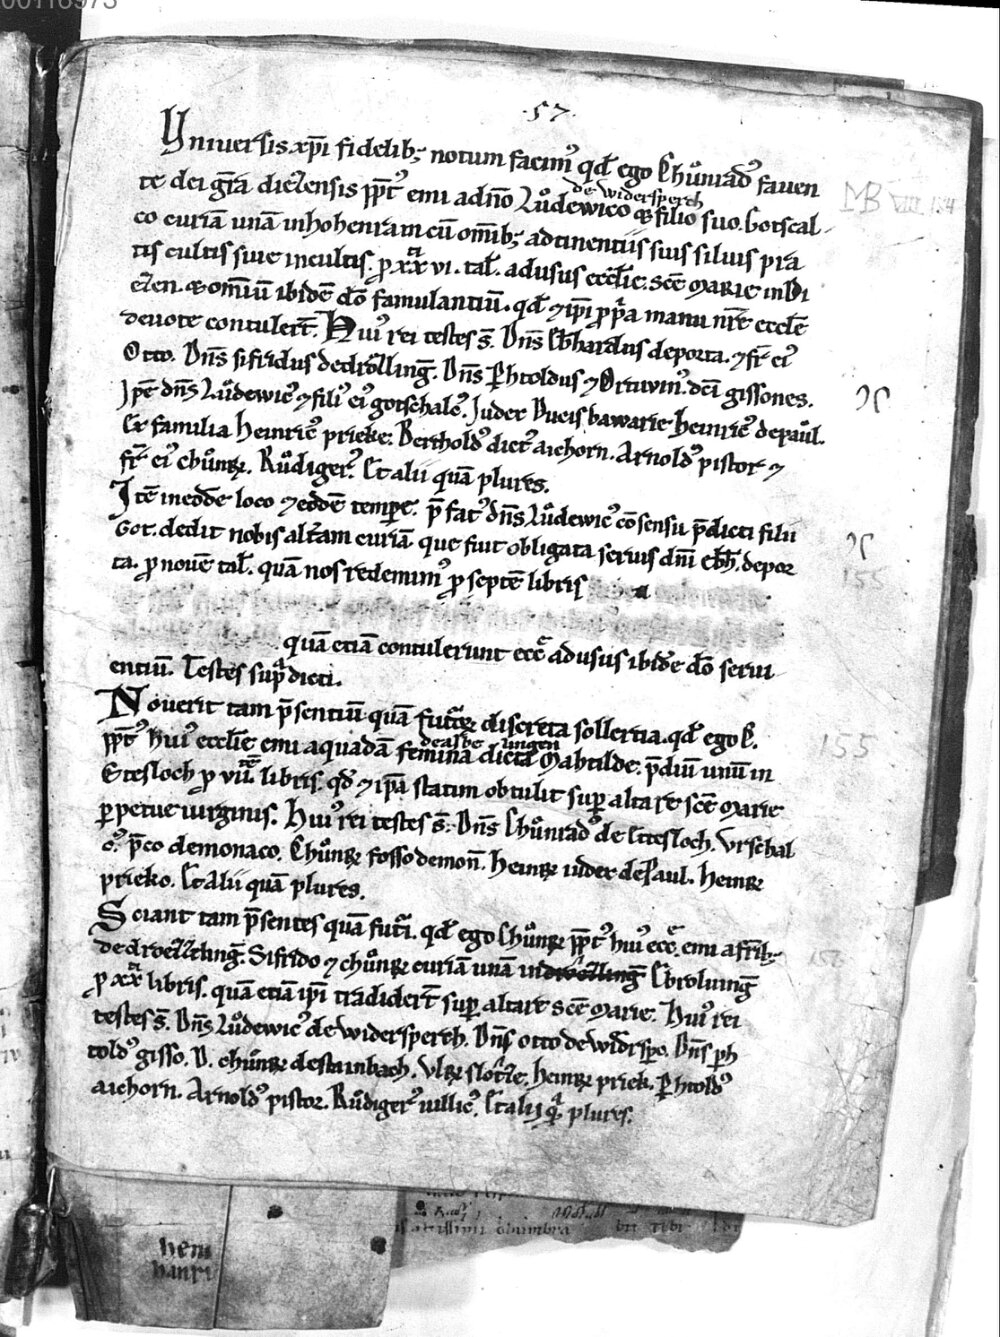 00116973
·57·
Vniuersis xp̄i fidelib; notum facim᷒ qd̄ ego Chůnrad᷒ fauen
te dei gr̄a diezensis pp̄t᷒ emi a dn̄o Lůdewico de widersperch ⁊ filio suo. Gotscal
co curiā unā in hohenram cū om̄ib; adtinentiis suis siluis pra
tis cultis siue incultis. p xx vi. tal̄. ad usus eccl̄ie. sc̄e Marie in Di
ezen. ⁊ om̄iū ibidē dō famulantiū. qd̄ ⁊ ip̄i pp̄a manu nr̄e eccl̄e
deuote contulert̄. Hui᷒ rei testes s̄. Dn̄s Ebhardus de porta. ⁊ fr̄ ei᷒
Otto. Dn̄s sifridus de drölling̅. Dn̄s Phtoldus ⁊ Ortuvin᷒. dc̄i gissones.
Ip̄e dn̄s Lůdewic᷒ ⁊ fili᷒ ei᷒ gotschalc᷒. Iudex Ducis bawarie Heinric᷒ de paul̄.
Ex familia Heinric᷒ prieke. Berthold᷒ dict᷒ aichorn. Arnold᷒ pistor ⁊
fr̄ ei᷒ chůnꝝ. Růdiger᷒. Et alii quā plures.
Itē in eodē loco ⁊ eodē tempore. p̄fat᷒ dn̄s Lůdewic᷒ cōsensu p̄dicti filii
Got. dedit nobis alt̄am curiā que fuit obligata seruis dn̄i ebh̄. de por
ta. p nouē tal̄. quā nos redemim᷒ p septē libris
quā etiā contulerunt ecc̄e ad usus ibidē dō serui
entiū. Testes sup̄dicti.
Nouerit tam p̄sentiū quā futuroꝝ discreta sollertia. qd̄ ego C.
pp̄t᷒ hui᷒ eccl̄ie emi a quadā femina de aspe lingen dicta Mahtilde. p̄diū unū in
Etesloch p vii libris. qd̄ ⁊ ip̄a statim obtulit sup altare sc̄e Marie
ppetue uirginis. Hui᷒ rei testes s̄. Dn̄s Chůnrad᷒ de Etesloch. Vrschal
c᷒. p̄co de monaco. Chůnꝝ fosso de mon̄. Heinꝝ iudex de Paul. Heinꝝ
prieko. Et alii quā plures.
Sciant tam p̄sentes quā futi̅. qd̄ ego Chůnꝝ pp̄t᷒ hui᷒ ecc̄e. emi a fr̄ib;
de droezzeling̅. Sifrido ⁊ chůnꝝ curiā unā in drölling̅ Ebroluing̅
p xx libris. quā etiā ip̄i tradidert̄ sup altare sc̄e Marie. Hui᷒ rei
testes s̄. Dn̄s Lůdewic᷒ de widersperch. Dn̄s otto de widerspc. Dn̄s ph
told᷒ gisso. D. chůnꝝ de stainbach. Vlꝝ slozze. Heinꝝ priek. Phtold᷒
aichorn. Arnold᷒ pistor. Růdiger᷒ uillic᷒. Et alii q̄ plures.
MB VIII 154
155
155
156
hein
hainri